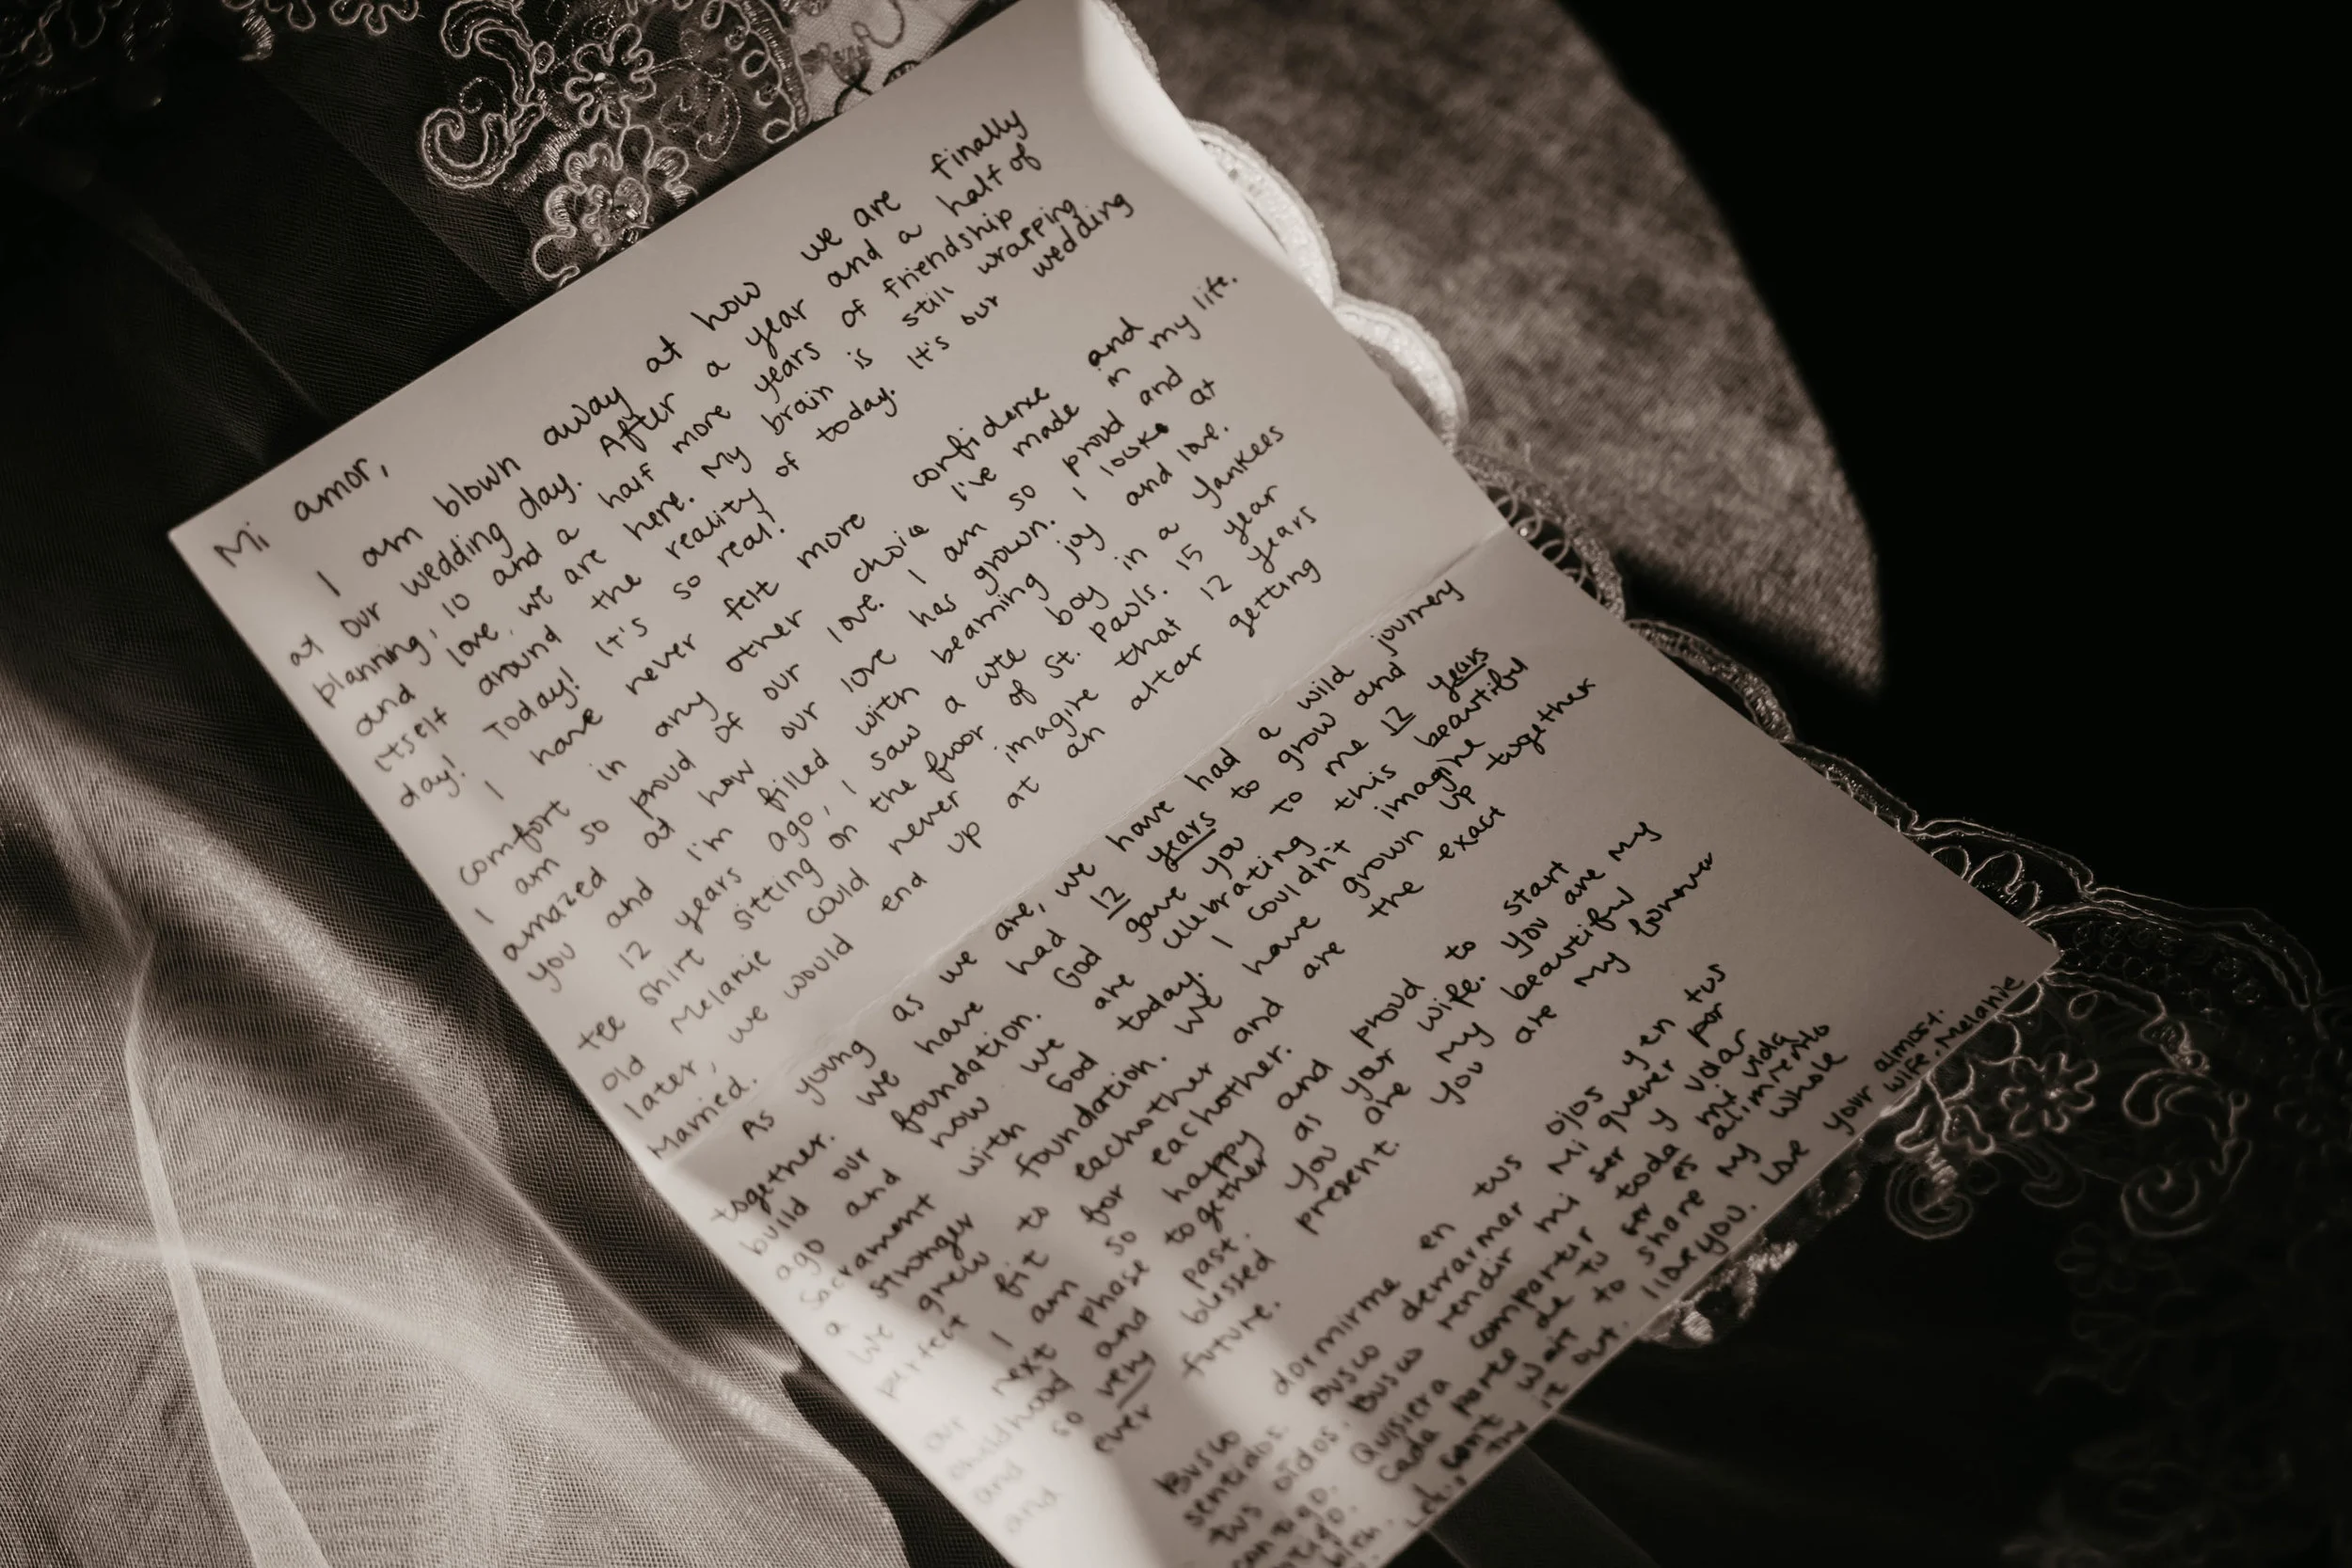 Mi amor,
I am blown away at how we are finally
at our wedding day. After a year and a half of
planning, 10 and a half more years of friendship
and love, we are here. My brain is still wrapping
itself around the reality of today. It's our wedding
day! Today! It's so real!
I have never felt more confidence and
comfort in any other choice I've made in my life.
I am so proud of our love. I am so proud and
amazed at how our love has grown. I look at
you and I'm filled with beaming joy and love.
12 years ago, I saw a cute boy in a Yankees
tee shirt sitting on the floor of St. Pauls. 15 year
old Melanie could never imagine that 12 years
later, we would end up at an altar getting
Married.
As young as we are, we have had a wild journey
together. We have had 12 years to grow and
build our foundation. God gave you to me 12 years
ago and now we are celebrating this beautiful
sacrament with God today. I couldn't imagine
a stronger foundation. We have grown up together
We grew to eachother and are the exact
perfect fit for eachother.
I am so happy and proud to start
our next phase together as your wife. You are my
childhood and past. You are my beautiful
and so very blessed present. You are my forever
and ever future.
Busco dormirme en tus ojos y en tus
sentidos. Busco derramar Mi querer por
tus oídos. Busco rendir mi ser y volar
contigo. Quisiera compartir toda mi vida
contigo. Cada parte de tu ser es alimento
bien. can't wait to share my whole
it out. I love you. Love your almost.
wife, Melanie